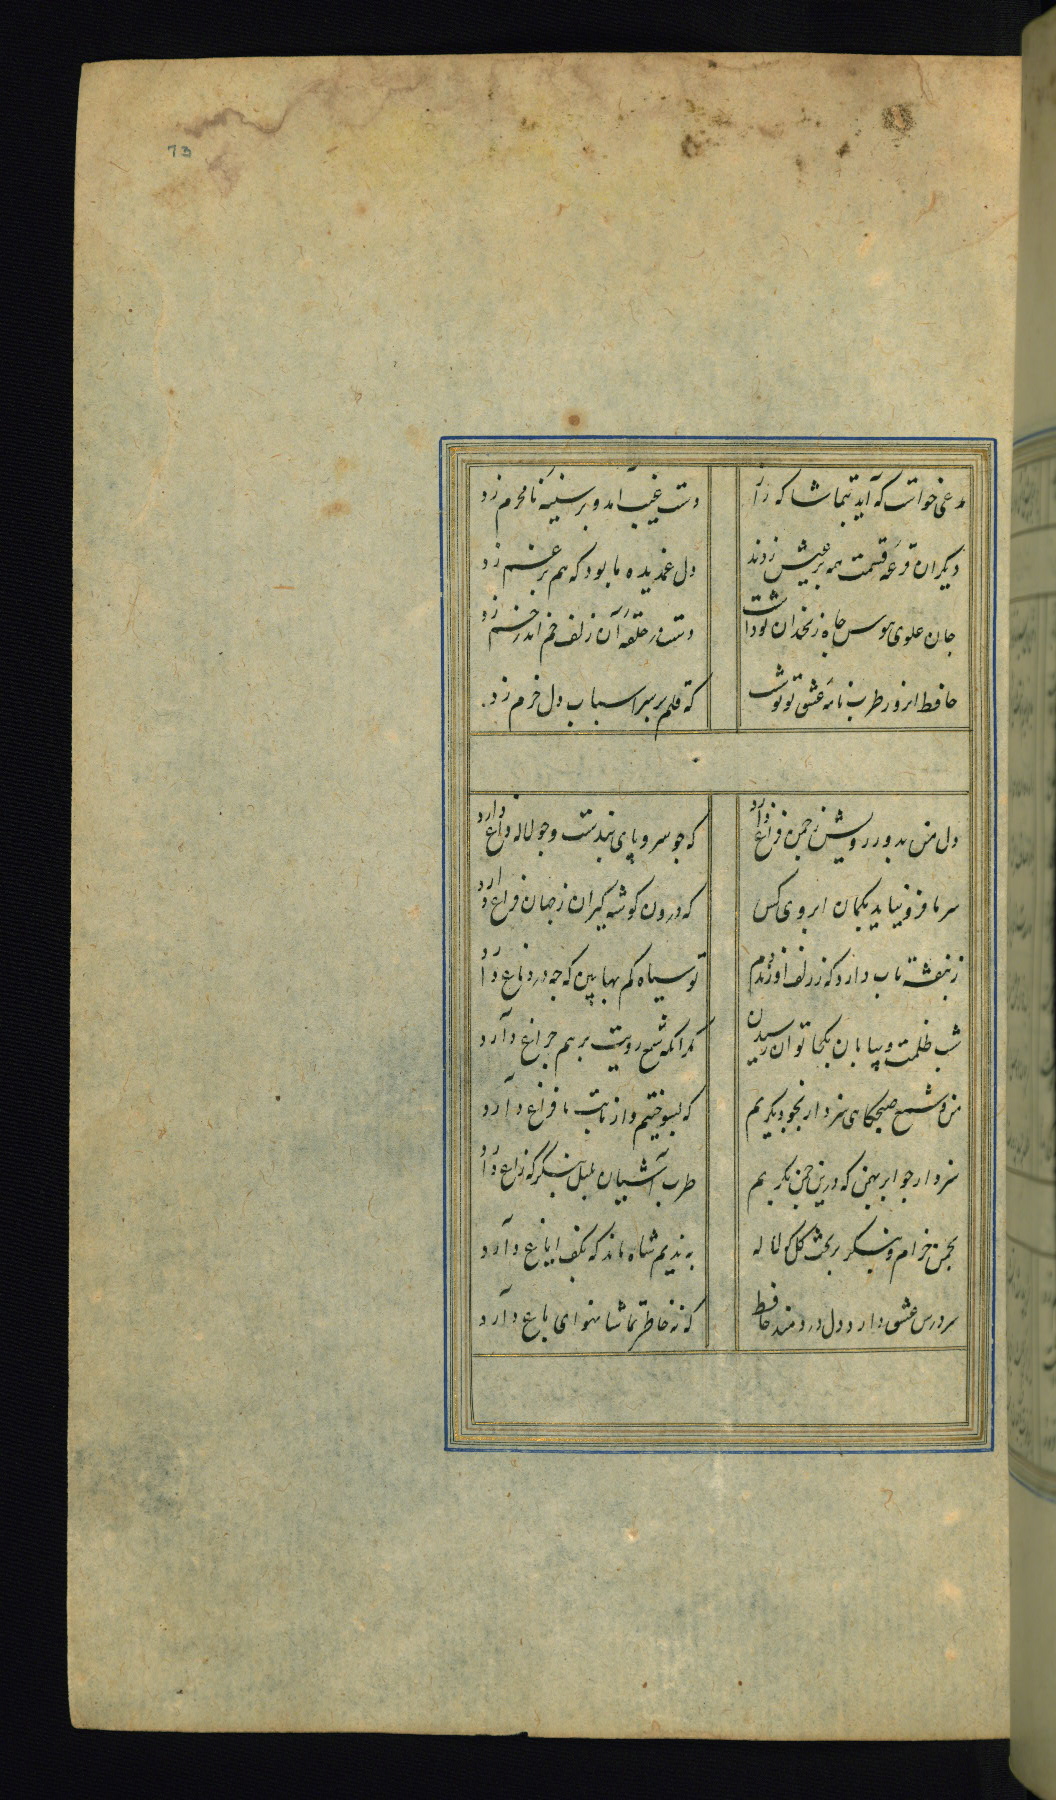 73
مدعی خواست که آید بتماشاکه راز
دست غیب آمد و بر سینه نامحرم زد
دیکران قرعه قسمت همه بر عیش زدند
دل غمدیده ما بود که هم بر غم زد
جان علوی هوس چاه زنخدان تو داشت
دست در حلقه آن زلف خم اندر خم زد
حافظ انروز طرب نامه عشق تو نوشت
که قلم بر سر اسباب دل خرم زد
دل من بدور رویش ز چمن فراغ دارد
که چو سرو پای بندست و چو لاله داغ دارد
سر ما فرو نیاید بکمان ابروی کس
که درون کوشه کیران ز جهان فراغ دارد
ز بنفشه تاب دارم که ز زلف او زند دم
تو سیاه کم بها بین که چه در دماغ دارد
شب ظلمت و بیابان بکجا توان رسیدن
مکر انکه شمع رویت برهم چراغ دارد
من و شمع صبحکاهی سزد ار بخود بکریم
که بسوختیم و از ما بت ما فراغ دارد
سزد ار چو ابر بهمن که درین چمن بکریم
طرب آشیان بلبل بنکر که زاغ دارد
بچمن خرام و بنکر بر تخت کل که لاله
به ندیم شاه ماند که بکف ایاغ دارد
سر درس عشق دارد دل دردمند حافظ
که نه خاطر تماشا نه هوای باغ دارد